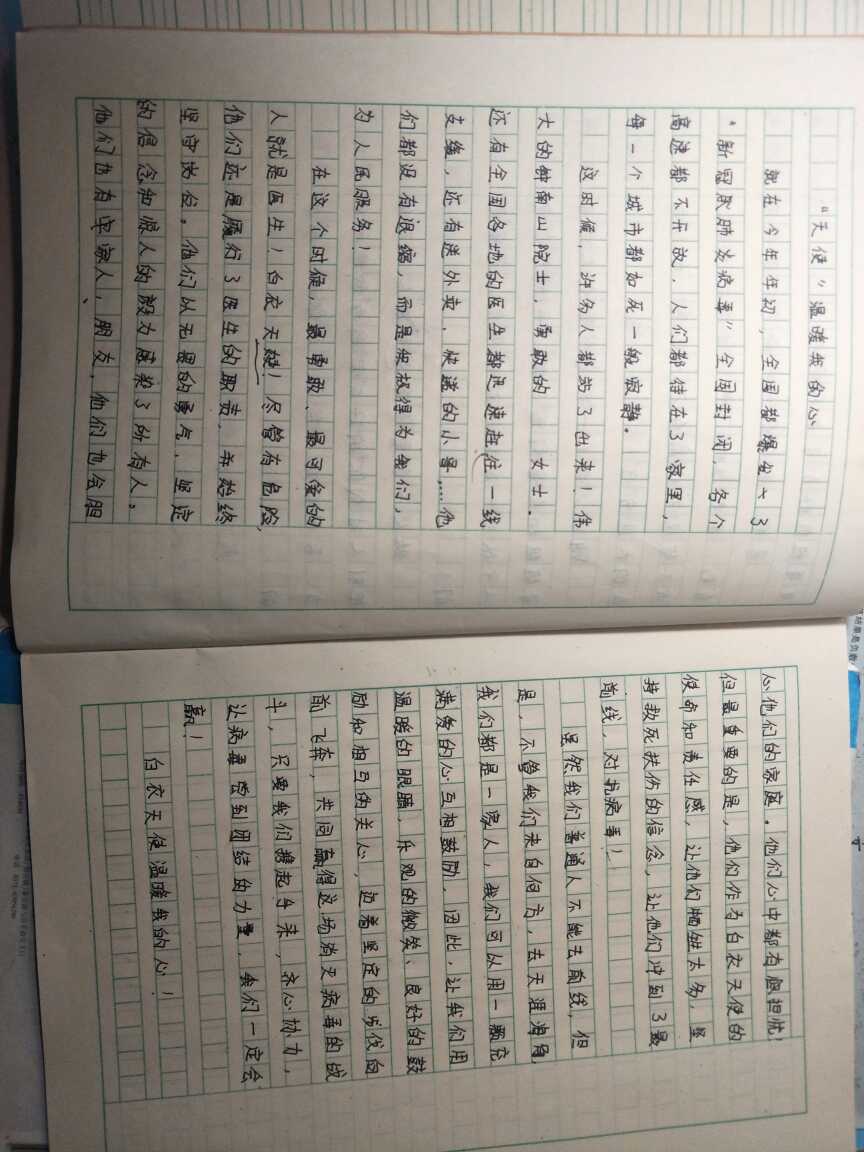 “天使”温暖我的心
就在今年年初，全国都爆发了
“新冠状肺炎病毒”全国封闭，各个
高速都不开放，人们都待在了家里，
每一个城市都如死一般寂静。
这时候，许多人都站了出来！伟
大的钟南山院士，勇敢的 女士．
还有全国各地的医生都迅速赶往一线
支援，还有送外卖、快递的小哥……他
们都没有退缩，而是积极得为我们，
为人民服务！
在这个时候，最勇敢、最可爱的
人就是医生！白衣天使！尽管有危险，
他们还是履行了医生的职责，并始终
坚守岗位。他们以无畏的勇气，坚定
的信念和惊人的毅力感染了所有人。
他们也有牢家人、朋友，他们也会担
心他们的家庭。他们心中都有担忧，
但最重要的是，他们作为白衣天使的
使命和责任感，让他们牺牲太多，坚
持救死扶伤的信念，让他们冲到了最
前线，对抗病毒！
虽然我们普通人不能去前线，但
是，不管我们来自何方，去天涯海角
我们都是一家人，我们可以用一颗充
满爱的心互相鼓励，因此，让我们用
温暖的眼睛，乐观的微笑、良好的鼓
励和相互的关心，迈着坚定的步伐向
前飞奔，共同赢得这场消灭病毒的战
斗，只要我们携起手来，齐心协力，
让病毒尝到团结的力量，我们一定会
赢！
白衣天使温暖我的心！